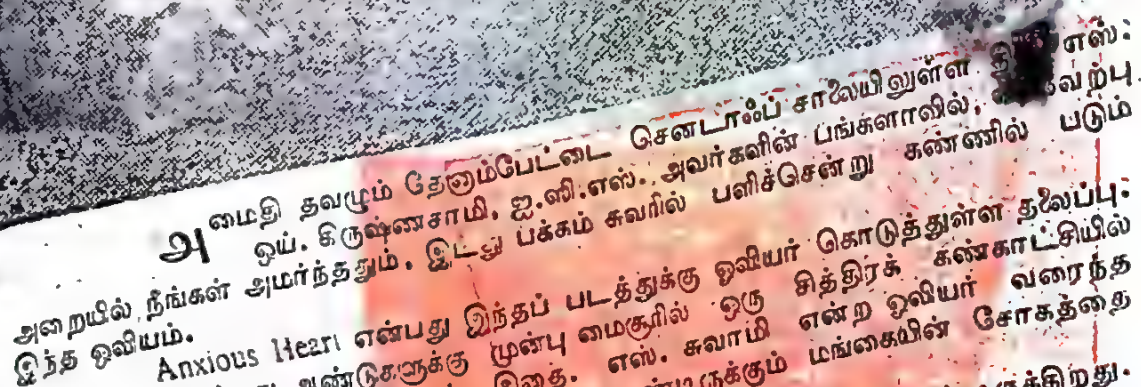 அமைதி தவழும் தேனும்பேட்டை செனடாஃப் சாலையிலுள்ள எஸ்.
ஒய். கிருஷ்ணசாமி, ஐ.ஸி.எஸ். அவர்களின் பங்களாவில்,
அறையில் நீங்கள் அமர்ந்ததும், இடது பக்கம் சுவரில் பளிச்சென்று கண்ணில் படும்
இந்த ஓவியம்.
Anxious Heart என்பது இந்தப் படத்துக்கு ஓவியர் கொடுத்துள்ள தலைப்பு.
ஆண்டுகளுக்கு முன்பு மைசூரில் ஒரு சித்திரக் கண்காட்சியில்
இதை. எஸ். சுவாமி என்ற ஓவியர் வரைந்த
மங்கையின் சோகத்தை